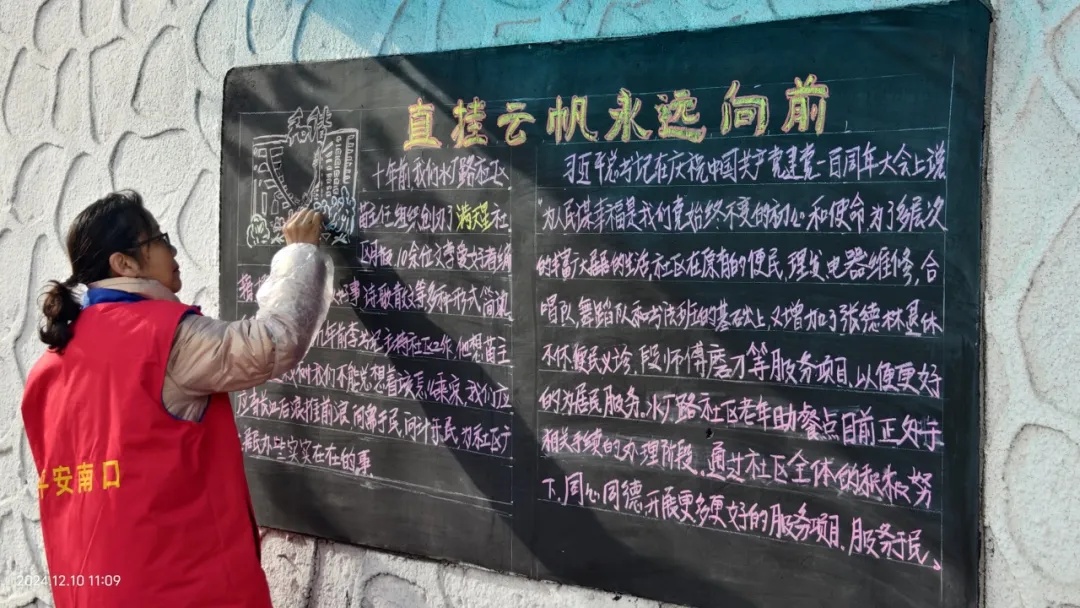 直挂云帆永远向前
和谐
十年前我们水厂路社区
苗主任组织创办了满天星社
区月报,10余位文学爱好者编
事诗歌散文等多种形式
几年前李书记主持社区工作,他想苗主
时我们不能光想着该怎么乘凉,我们应
应当长江后浪推前浪,问需于民,问计于民,为社区广
居民办些实实在在的事
习近平总书记在庆祝中国共产党建党一百周年大会上说
“为人民谋幸福是我们党始终不变的初心和使命”为了多层次
的丰富广大居民的生活,社区在原有的便民,理发,电器维修,合
唱队,舞蹈队和书法班的基础上,又增加了张德林退休
不休便民义诊,段师傅磨刀等服务项目,以便更好
的为居民服务。水厂路社区老年助餐点目前正处于
相关手续的办理阶段,通过社区全体的积极努
下,同心同德,开展更多更好的服务项目,服务于民、
平安南口
2024.12.10 11:09